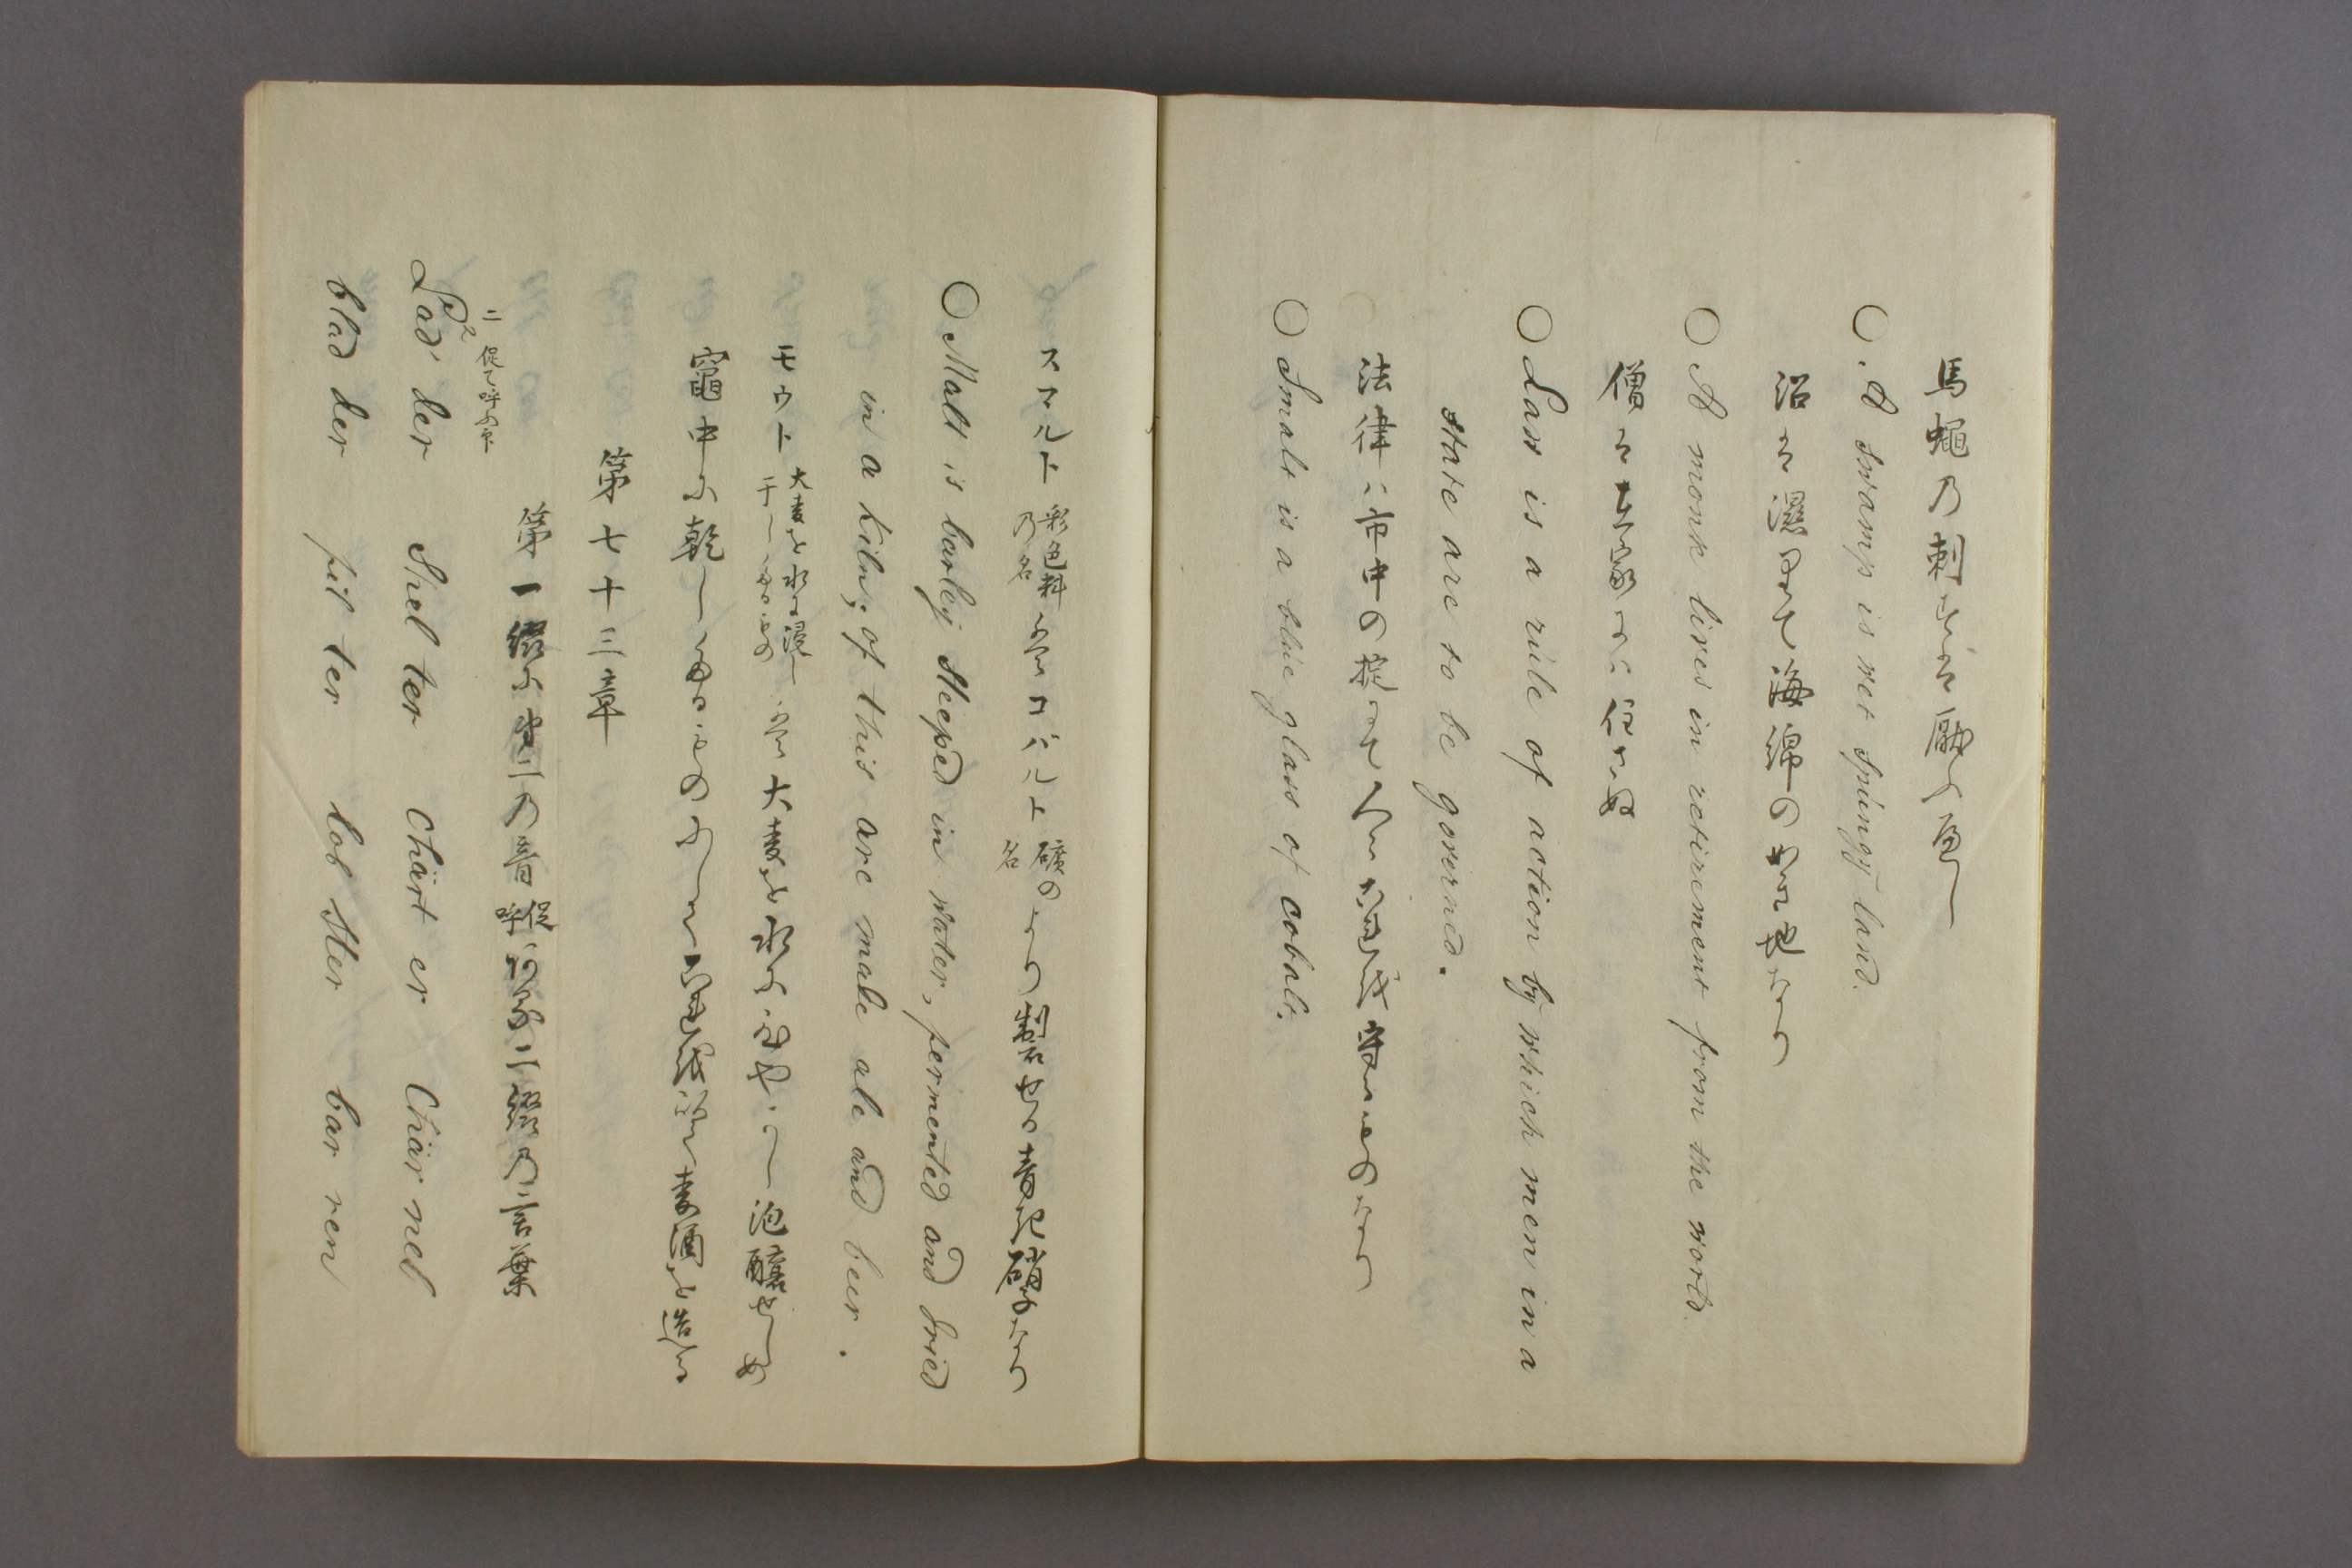 馬蠅乃刺
○ A swamp is wet spungy land.
沼は濕りて海綿の如き地なり
○ A monk lives in retirement from the world.
僧は
○ Law is a rule of action by which men in a
state are to be governed.
法律ハ市中の掟にて人々是を守るものなり
○ Smalt is a blue glass of cobalt.
スマルト 彩色料乃名 コバルト 礦の名 より製せる青記硝子なり
○ Malt is barley steeped in water, fermented and dried
in a kiln; of this are made ale and beer.
モウト 大麦を水に浸し干したるもの 大麦を水に泡釀せしめ
竈中に乾したるものにして麦酒を造る
第七十三章
第一綴に第二の音 促呼 二綴乃言葉
二 促て呼ふ印
Lad' der Shel ter Chärt er Chär nel
blad der fil ter lob ster bar ren